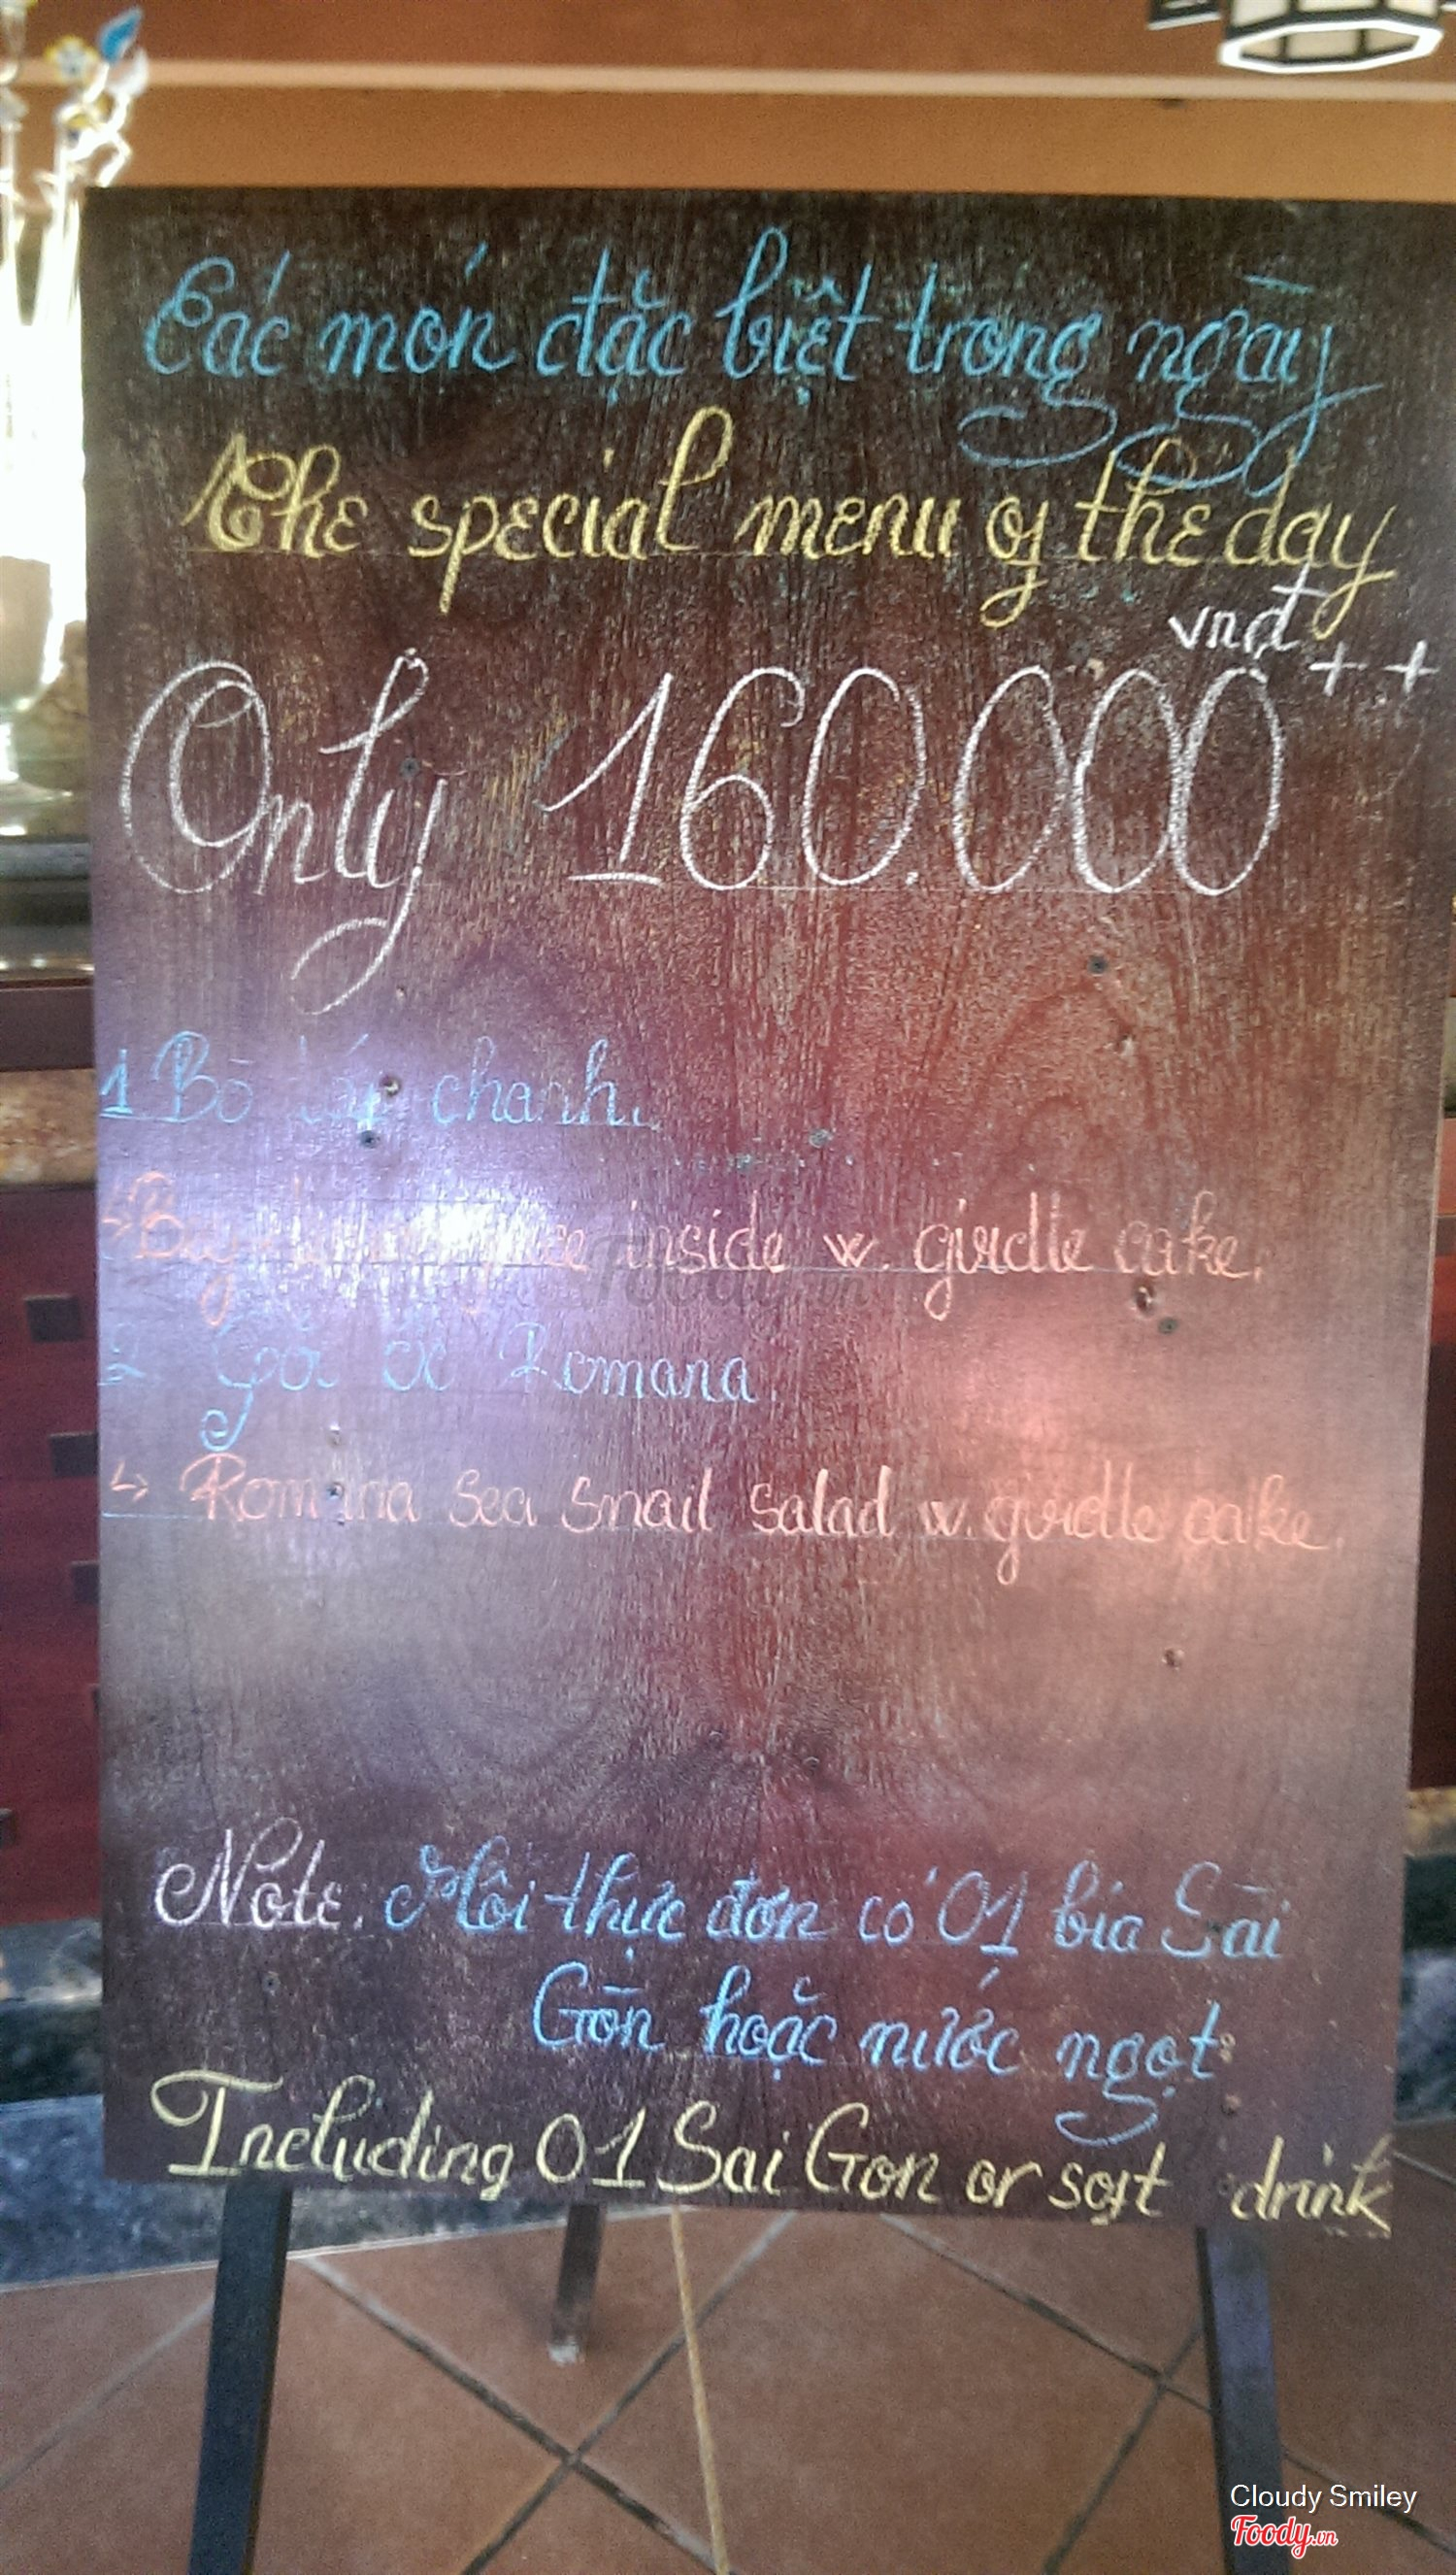 Các món đặc biệt trong ngày
The special menu of the day
vnđ ++
Only 160.000
1 Bò tái chanh.
↳ inside w. girdle cake.
2 Gỏi ốc Romana.
↳ Romana Sea Snail Salad w. girdle cake.
Note. Mỗi thực đơn có 01 bia Sài
Gòn hoặc nước ngọt
Including 01 Sai Gon or soft drink
Foody.vn
Cloudy Smiley
Foody.vn